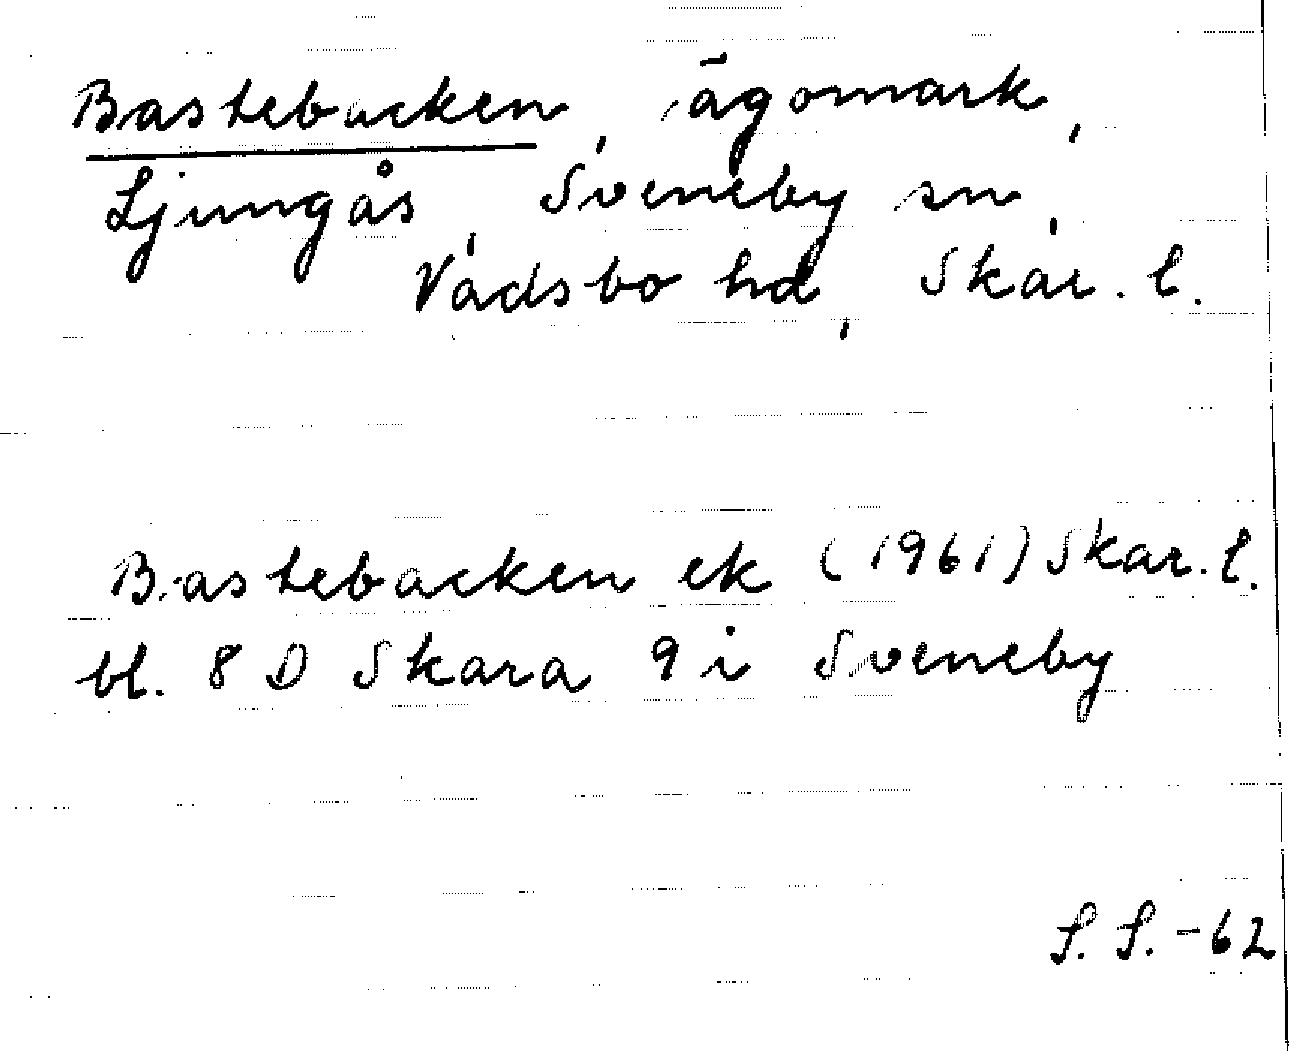 Bastebacken, ägomark,
Ljungås, Sveneby sn,
Vadsbo hd, Skar. l.
Bastebacken ek (1961) Skar. l.
bl. 8 D Skara 9 i Sveneby
S. S. -62